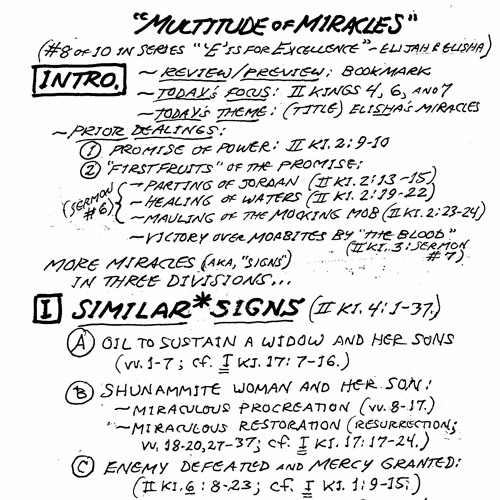 "MULTITUDE OF MIRACLES"
(#8 OF 10 IN SERIES "'E' IS FOR EXCELLENCE" - ELIJAH & ELISHA)
INTRO. ~ REVIEW/PREVIEW: BOOKMARK
~ TODAY'S FOCUS: II KINGS 4, 6, AND 7
~ TODAY'S THEME: (TITLE) ELISHA'S MIRACLES
~ PRIOR DEALINGS:
① PROMISE OF POWER: II KI. 2:9-10
② "FIRSTFRUITS" OF THE PROMISE:
~ PARTING OF JORDAN (II KI. 2:13-15)
(SERMON #6) { ~ HEALING OF WATERS (II KI. 2:19-22)
~ MAULING OF THE MOCKING MOB (II KI. 2:23-24)
~ VICTORY OVER MOABITES BY "THE BLOOD"
(II KI. 3: SERMON #7)
MORE MIRACLES (AKA, "SIGNS")
IN THREE DIVISIONS...
I SIMILAR* SIGNS (II KI. 4:1-37.)
Ⓐ OIL TO SUSTAIN A WIDOW AND HER SONS
(vv. 1-7; cf. I KI. 17:7-16.)
Ⓑ SHUNAMMITE WOMAN AND HER SON:
~ MIRACULOUS PROCREATION (vv. 8-17.)
~ MIRACULOUS RESTORATION (RESURRECTION;
vv. 18-20, 27-37; cf. I KI. 17:17-24.)
Ⓒ ENEMY DEFEATED AND MERCY GRANTED:
(II KI. 6:8-23; cf. I KI. 1:9-15.)